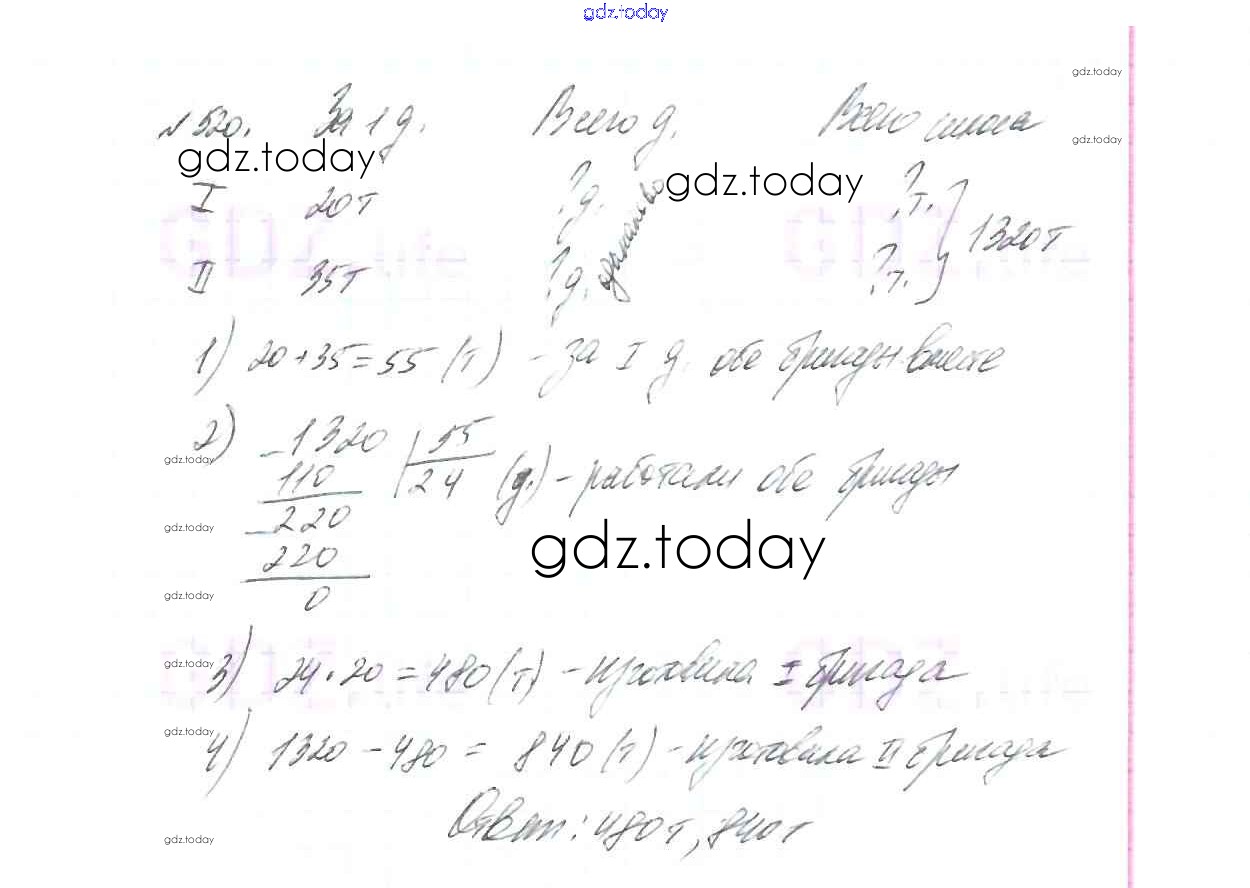 gdz.today
gdz.today
№520. За 1 д. Всего д. Всего силоса
gdz.today
gdz.today
gdz.today
I 20т ? д. одинаково ? т. } 1320т
II 35т ? д. ? т.
1) 20+35=55 (т) - за I д. обе бригады вместе
2) 1320 | 55
gdz.today
110 24 (д.) - работали обе бригады
220
gdz.today
gdz.today
220
gdz.today
0
gdz.today
3) 24·20=480(т) - изготовила I бригада
gdz.today
4) 1320-480= 840(т) - изготовила II бригада
Ответ: 480т, 840т
gdz.today